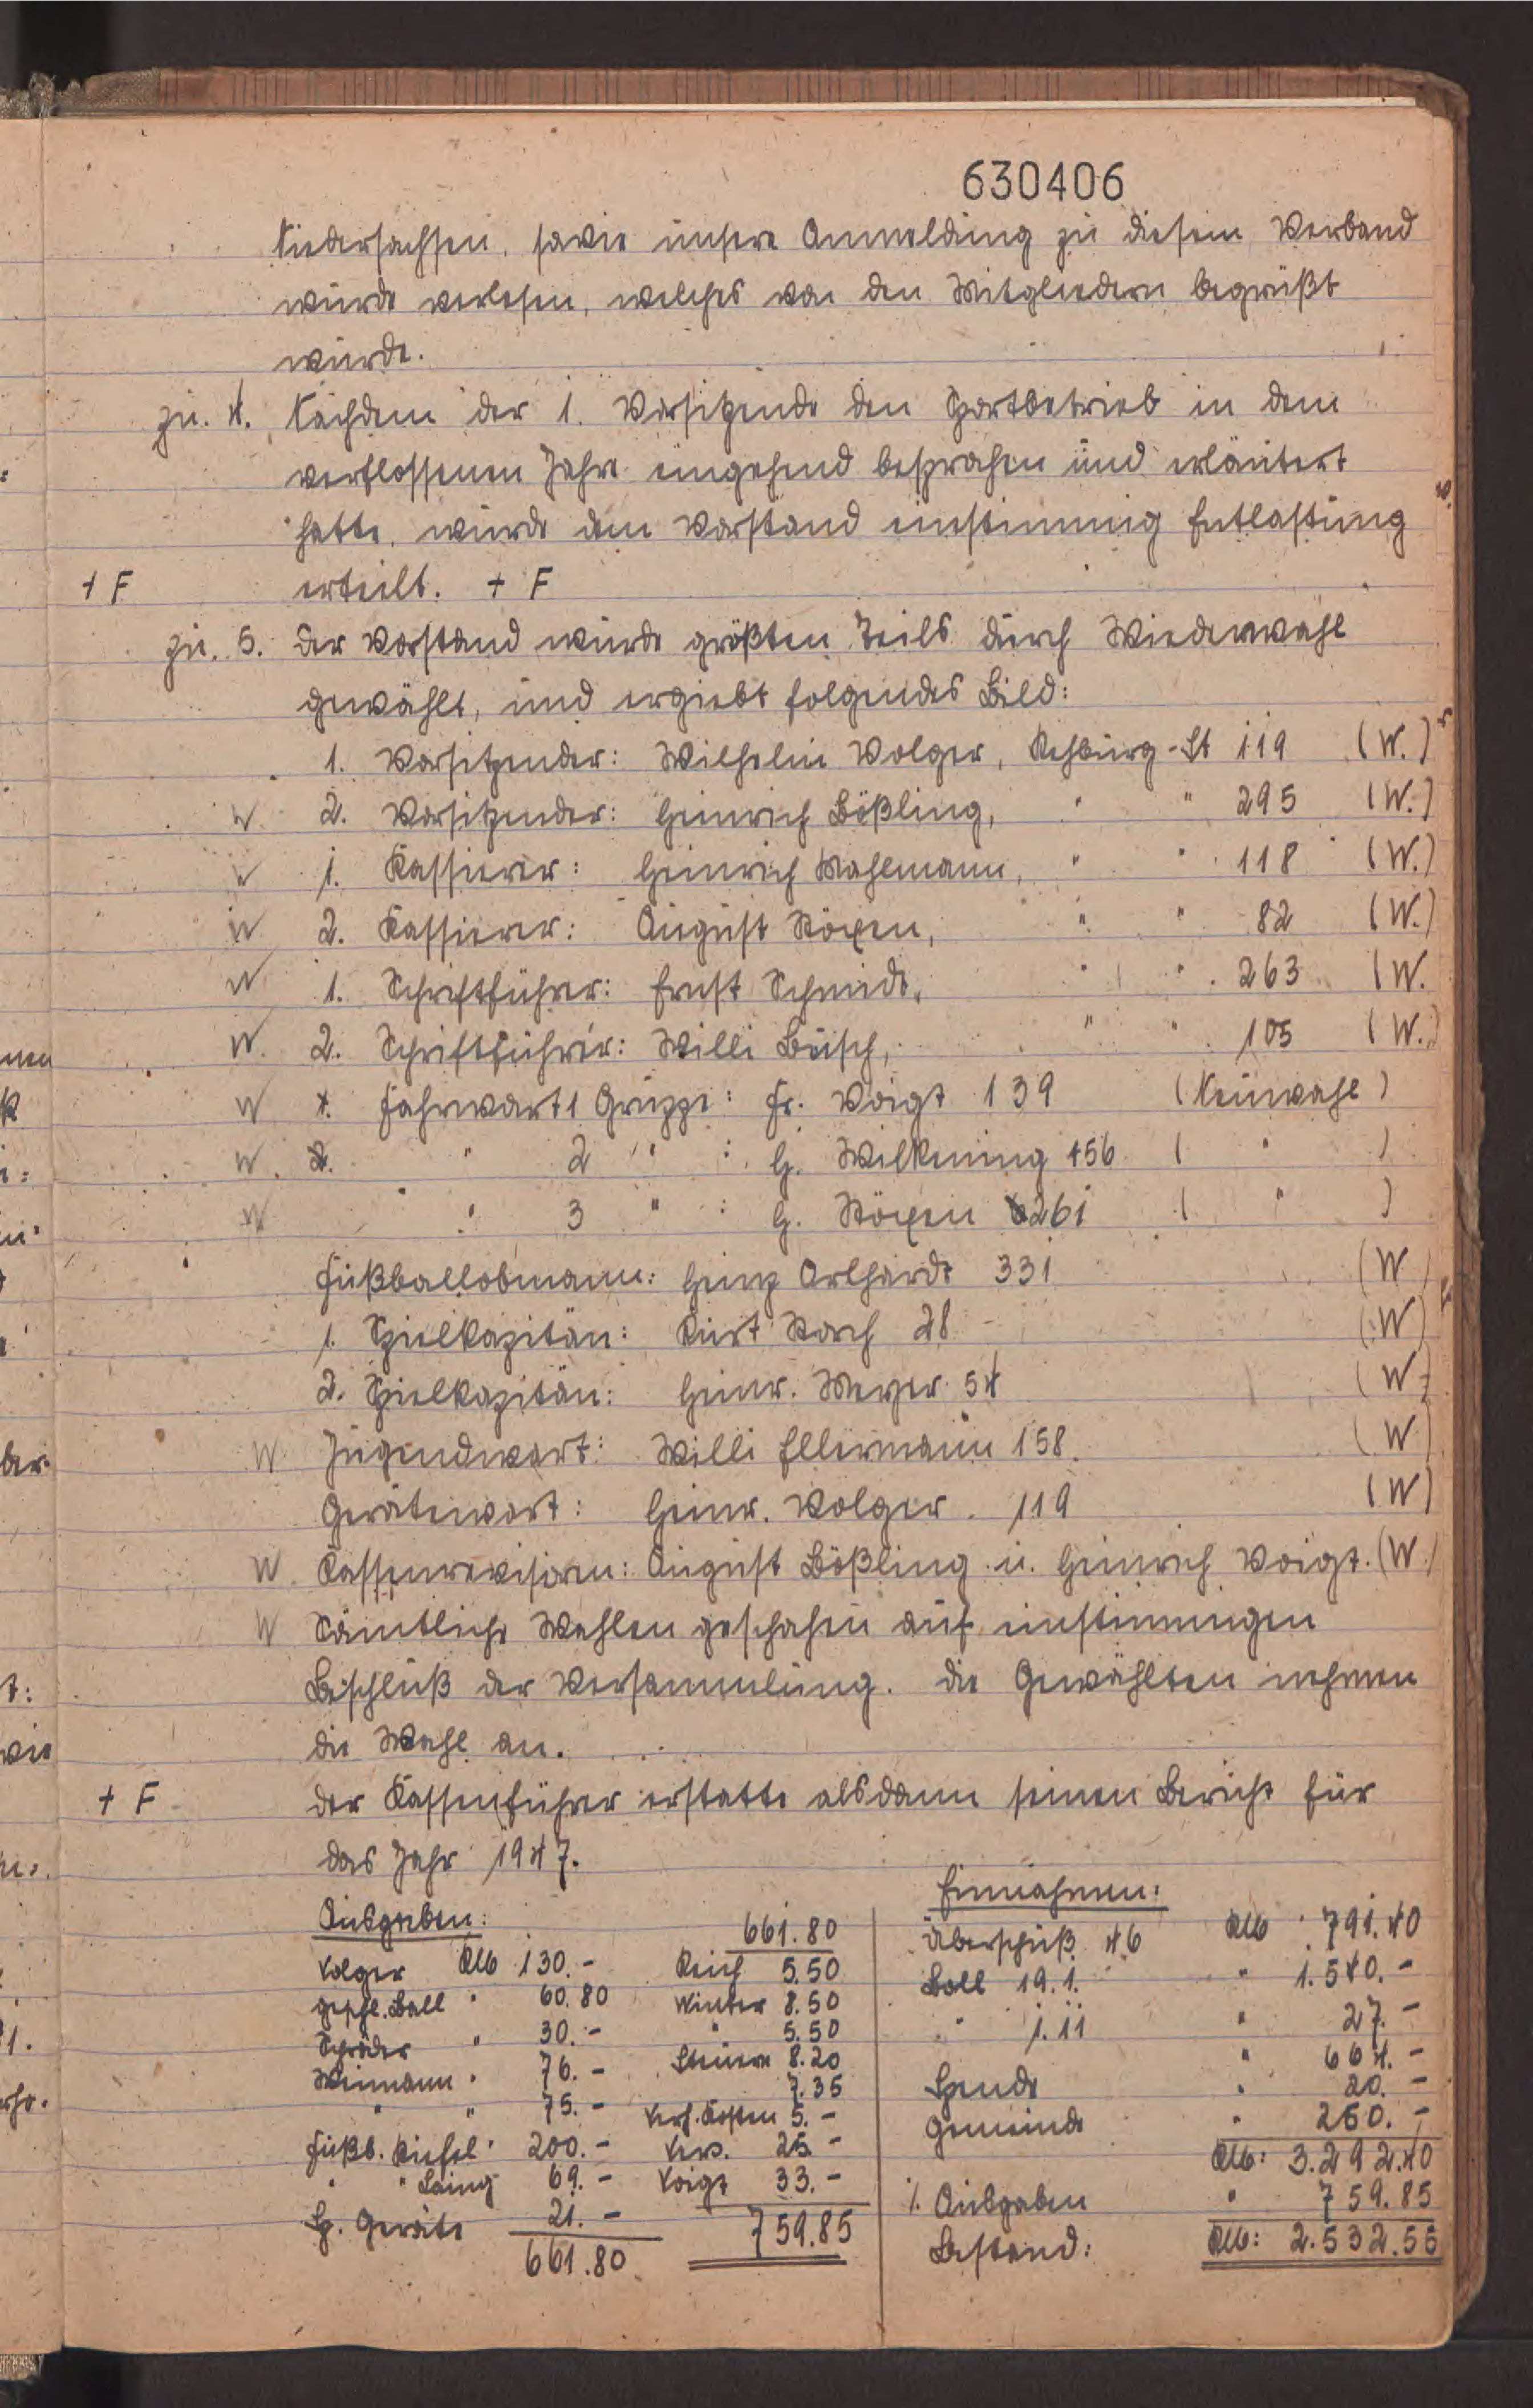 630406
Niedersachsen, sowie unsere Anmeldung zu diesem Verband
wurde verlesen, welches von den Mitgliedern begrüßt
wurde.
zu. 4. Nachdem der 1. Vorsitzende den Sportbetrieb in dem
verflossenen Jahre eingehend besprochen und erläutert
hatte, wurde dem Vorstand einstimmig Entlastung
+ F erteilt. + F
zu. 5. Der Vorstand wurde größten Teils durch Wiederwahl
gewählt, und ergiebt folgendes Bild:
1. Vorsitzender: Wilhelm Volger, Rehburg-St 119 (W.)
W. 2. Vorsitzender: Heinrich Bößling, " " 295 (W.)
W 1. Kassierer: Heinrich Mahlmann, " " 118 (W.)
W 2. Kassierer: August Stöxen, " " 82 (W.)
W 1. Schriftführer: Ernst Schmidt, " " 263 (W.
W. 2. Schriftführer: Willi Busch, " " 105 (W.)
W Fahrwart 1 Gruppe: Fr. Voigt 139 (Neuwahl)
W. " 2 " : H. Wilkening 156 ( " )
W " " 3 " : H. Stöxen 261 ( " )
Fußballobmann: Heinz Orlhardt 331 (W)
1. Spielkapitän: Kurt Storch 28 (W)
2. Spielkapitän: Heinr. Meyer 54 (W)
W Jugendwart: Willi Ellermann 158. (W)
Gerätewart: Heinr. Volger. 119 (W)
W. Kassenrevisoren: August Bößling u. Heinrich Voigt. (W.)
W Sämtliche Wahlen geschahen auf einstimmigen
Beschluß der Versammlung. Die Gewählten nehmen
die Wahl an.
+ F Der Kassenführer erstatte alsdann seinen Bericht für
das Jahr 1947.
Ausgaben: 661.80
Volger RM 130.- Reich 5.50
gesp. Ball " 60.80 Winter 8.50
Schröder " 30.- " 5.50
Weimann " 76.- Steuern 8.20
" " 75.- 7.35
Verh. Kosten 5.-
Fußb. Stiefel " 200.- Vers. 25.-
" " 69.- Voigt 33.-
Sp. Geräte 21.- 759.85
661.80
Einnahmen:
Überschuß 46 RM 791.40
Ball 19.1. " 1.540.-
" 1.11 " 27.-
" 664.-
Spende " 20.-
Gemeinde " 250.-
RM: 3.292.40
./. Ausgaben " 759.85
Bestand: RM: 2.532.55